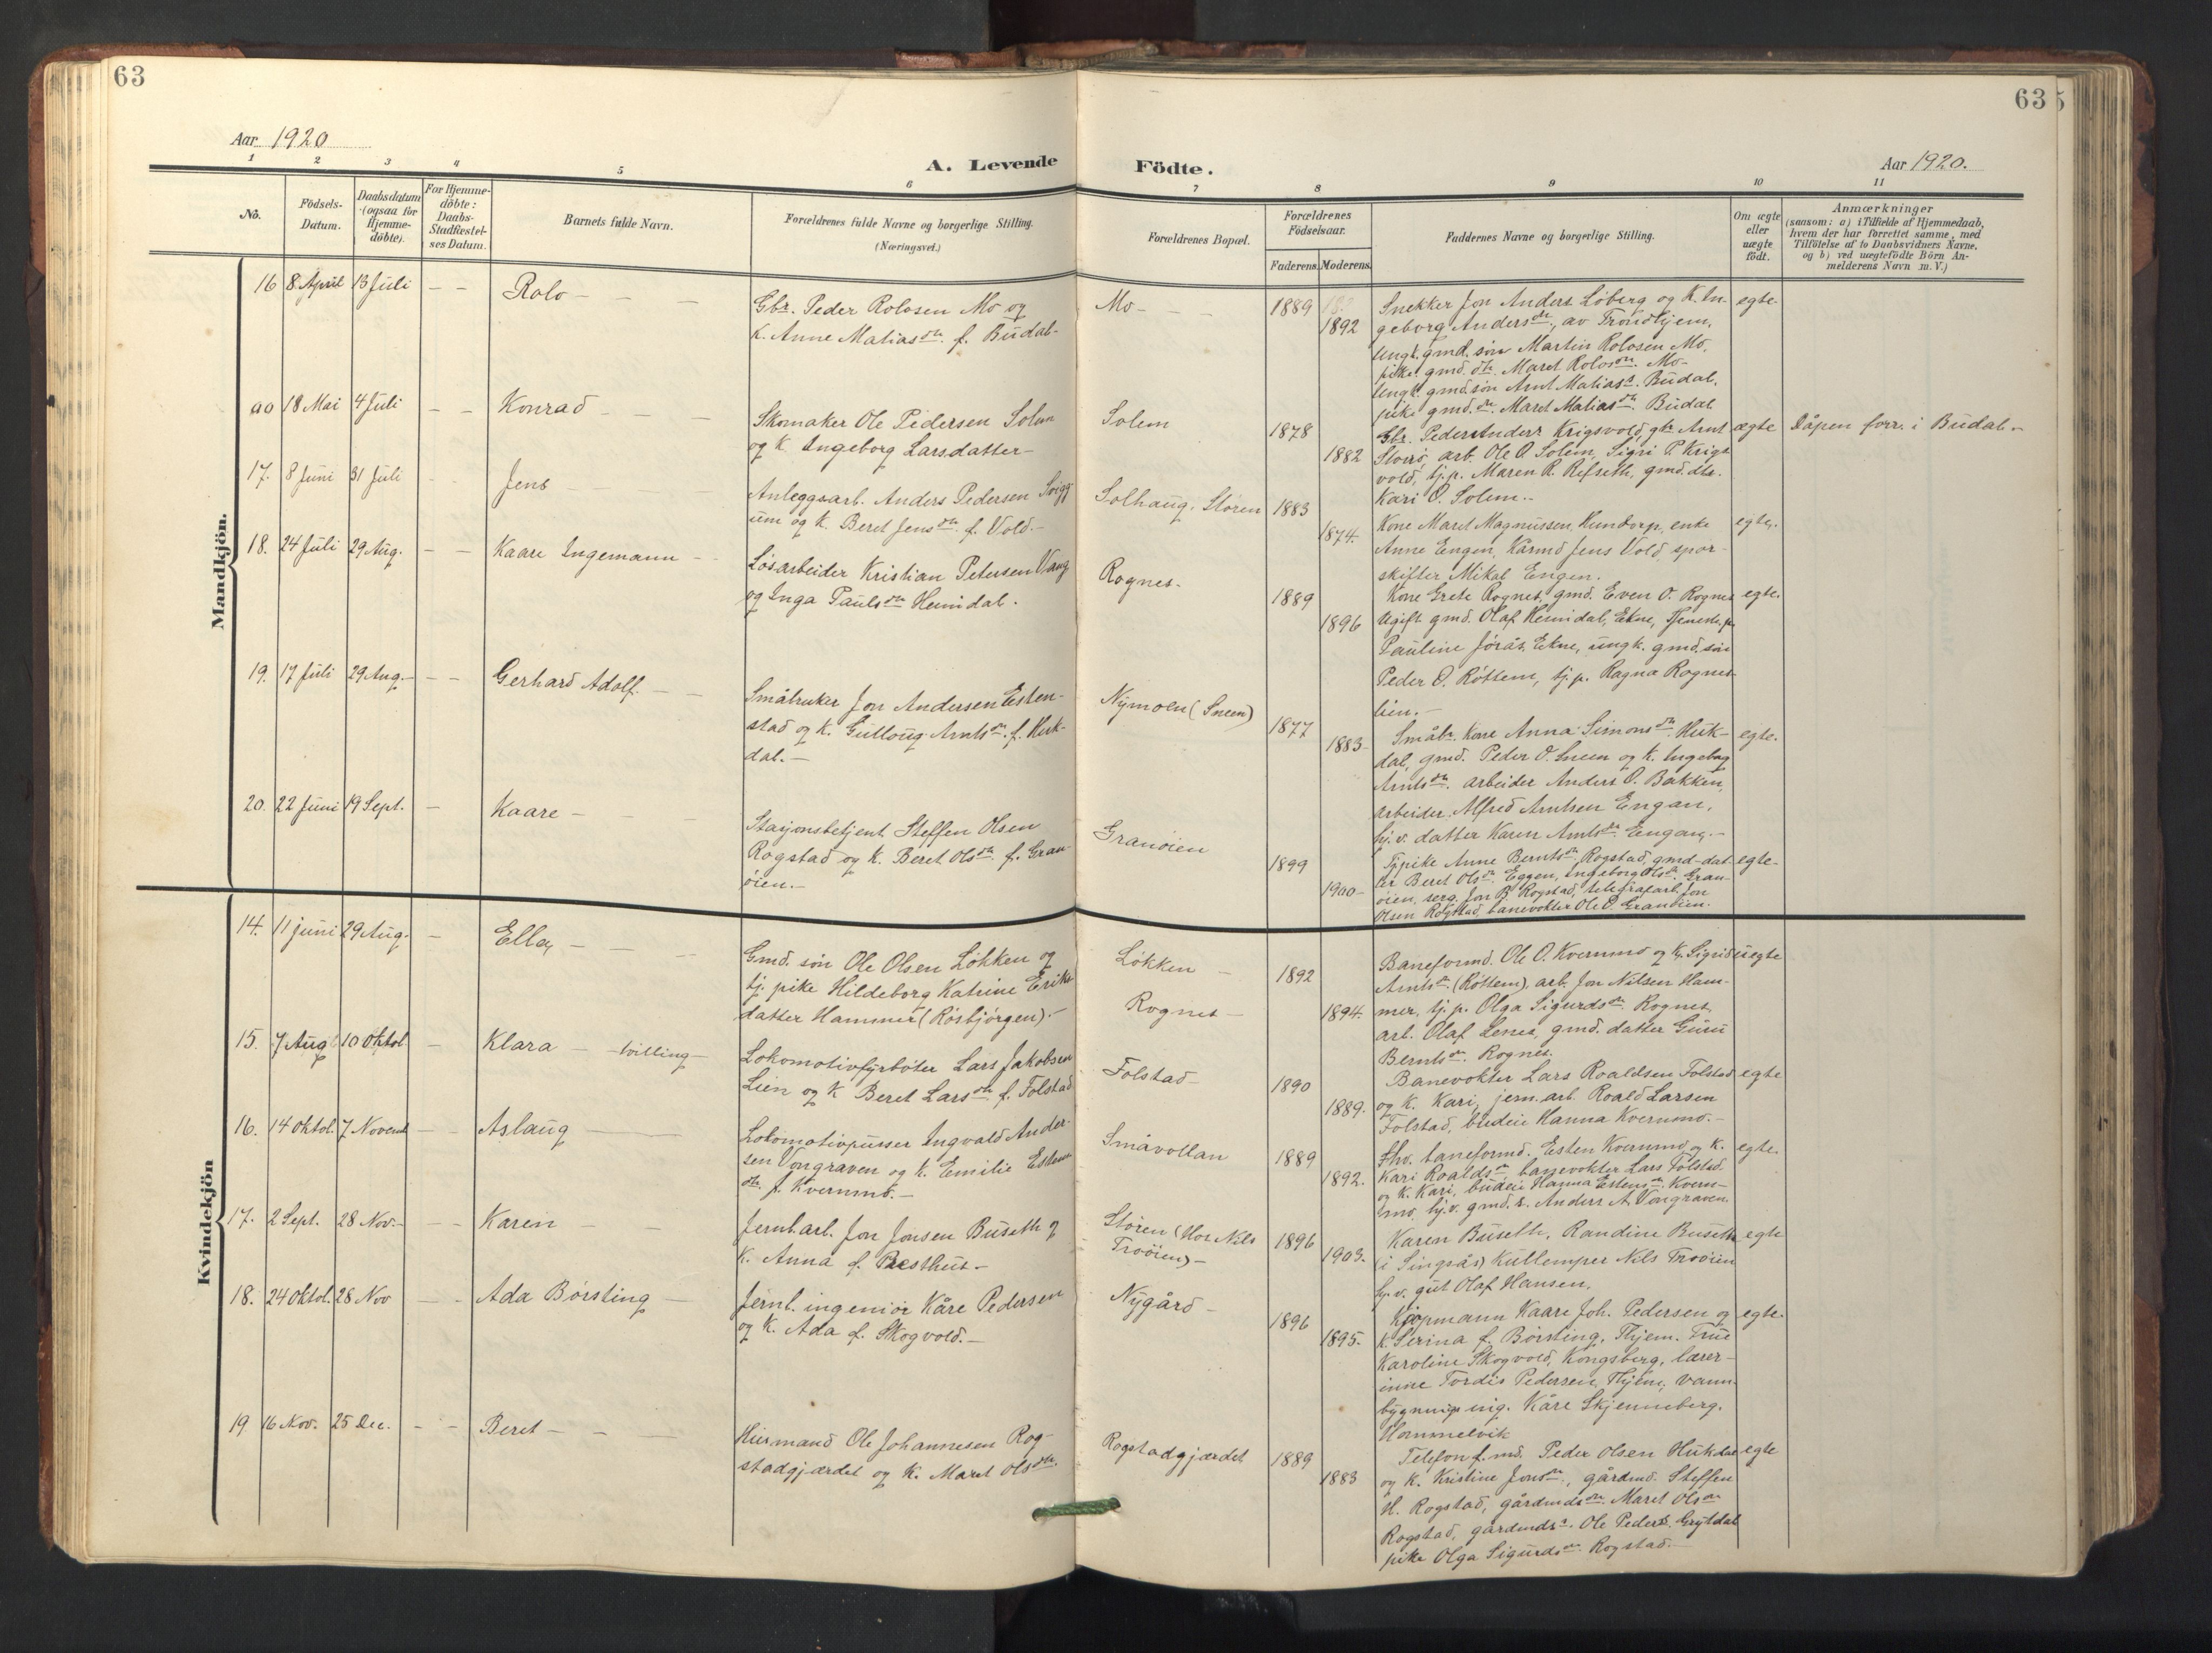 63
63
Aar 1920
A. Levende Födte.
Aar 1920.
1 2 3 4 5 6 7 8 9 10 11
No.
Födsels-
Datum.
Daabsdatum
(ogsaa for
Hjemme-
döbte).
For Hjemme-
döbte:
Daabs-
Stadfæstel-
ses Datum.
Barnets fulde Navn.
Forældrenes fulde Navne og borgerlige Stilling.
(Næringsvei.)
Forældrenes Bopæl.
Forældrenes
Födselsaar.
Faderens. Moderens.
Faddernes Navne og borgerlige Stilling.
Om ægte
eller
uægte
födt.
Anmærkninger
(saasom: a) i Tilfælde af Hjemmedaab,
hvem der har forrettet samme, med
Tilföielse af to Daabsvidners Navne,
og b) ved uægtefödte Börn An-
melderens Navn m. V.)
Mandkjön.
16 8 April 13 Juli – – Rolo – – –
Gbr. Peder Rolosen Mo og
k. Anne Matiasdtr. f. Budal-
Mo – –
1889
1892
Snekker Jon Anders. Løberg og K. In-
geborg Andersdtr., av Trondhjem,
ungk. gmd. søn Martin Rolosen Mo,
pike gmd. dtr. Maret Rolosdtr. Mo-
ungk. gmd. søn Arnt Matiass. Budal,
pike gmd. dtr. Maret Matiasdtr. Budal.
egte
ao 18 Mai 4 Juli – – Konrad – – –
Skomaker Ole Pedersen Solem
og k. Ingeborg Larsdatter –
Solem
1878
1882
Gbr. Peder Anders Krigsvold, gbr. Arnt
Storrø, arb. Ole O. Solem, Sigri P. Krigs
vold, tj.p. Maren R. Refseth, gmd. dtr.
Kari O. Solem.-
ægte
Dåpen forr. i Budal –
17. 8 Juni 31 Juli Jens
Anleggsarb. Anders Pedersen Svigg
um og k. Beret Jensdtr. f. Vold.–
Solhaug. Støren
1883
1874.
Kone Maret Magnussen, Hundorp, enke
Anne Engen, Karmd Jens Vold, spor-
skifter Mikal Engen.
egte.
18. 24 Juli 29 Aug. – – Kaare Ingemann –
Løsarbeider Kristian Petersen Vang
og Inga Paulsdtr. Heimdal.
Rognes.
1889
1896
Kone Grete Rognes, gmd. Even O. Rognes
Ugift gmd. Olaf Heimdal, Ekne, Tjeneste p.
Pauline Jørås, Ekne, ungk. gmd. søn
Peder O. Røttem, tj. p. Ragna Rognes-
lien.–
egte.
19. 17 Juli 29 Aug. – – Gerhard Adolf. –
Småbruker Jon Andersen Esten-
stad og k. Gulloug Arntsdtr. f. Huk-
dal.–
Nymoen (Sneen)
1877
1883–
Småbr. kone Anna Simonsdtr. Huk-
dal, gmd. Peder O. Sneen og k. Ingeborg
Arntsdtr. arbeider Anders O. Bakken,
arbeider Alfred Arntsen Engan,
hj. v. datter Karen Arntsdtr. Engan.–
egte.
20. 22 Juni 19 Sept. – Kaare – – –
Stasjonsbetjent Steffen Olsen
Rogstad og k. Beret Olsdtr. f. Gran-
øien.–
Granøien
1899
1900–
Tj.pike Anne Berntsdtr. Rogstad, gmd-dat
ter Beret Olsdtr. Eggen, Ingeborg Olsdtr. Gran-
øien, serg. Jon B. Rogstad, telegrafarb. Jon
Olsen Rogstad, banevokter Ole O. Granøien.
egte-
Kvindekjön
14. 11 juni 29 Aug. – Ella – –
Gmd. søn Ole Olsen Løkken og
tj. pike Hildeborg Katrine Eriks
datter Hammer (Rosbjørgen).–
Løkken –
Rognes –
1892
1894.
Baneformd. Ole O. Kvernmo og k. Sigrid
Arntsdtr. (Røttem), arb. Jon Nilsen Ham-
mer, tj. p. Olga Sigurdsdtr. Rognes,
arb. Olaf Lenes, gmd. datter Guru
Berntsdtr. Rognes.
uegte
15. 7 Aug. 10 Oktob. – Klara – tvilling –
Lokomotivfyrbøter Lars Jakobsen
Lien og k Beret Larsdtr. f. Folstad
Folstad –
1890
1889.
Banevokter Lars Roaldsen Folstad
og k. Kari, jern. arb. Roald Larsen
Folstad, budeie Hanna Kvernmo.–
egte
16. 14 Oktob. 7 Novemb – – Aslaug
Lokomotivpusser Ingvald Ander-
sen Vongraven og k. Emilie Estens
dtr. f. Kvernmo.–
Småvollan
1889
1892.
Fhv. baneformd. Esten Kvernmo og k.
Kari Roaldsdtr. banevokter Lars Folstad
og k. Kari, budeie Hanna Estensdtr. Kvern-
mo, hj. v. gmd. s. Anders A. Vongraven.
egte.
17. 2 Sept. 28 Nov.– – – Karen – –
Jernb. arb. Jon Jonsen Buseth og
k. Anna f. Presthus –
Støren (hos Nils
Troøien) –
1896
1903.
Karen Buseth, Randine Buseth
(i Singsås) Kullemper Nils Troøien
hj. v. gut Olaf Hansen.
egte
18. 24 Oktob. 28 Nov – – Ada Børsting –
Jernb. ingeniør Kåre Pedersen
og k. Ada f. Skogvold.–
Nygård –
1896
1895.
Kjøpmann Kaare Joh. Pedersen og
k. Serina f. Børsting, Thjem. Frue
Karoline Skogvold, Kongsberg, lærer-
inne Tordis Pedersen, Thjem, vann-
bygnings ing. Kåre Skjenneberg,
Hommelvik
egte.
19 16 Nov. 25 Dec. – – Beret – – –
Husmand Ole Johannesen Rog-
stadgjærdet og k. Maret Olsdtr.
Rogstadgjærdet
1889
1883
Telefonf.md. Peder Olsen Hukdal
og k. Kristine Jonsdtr., gårdmd. Steffen
H. Rogstad, gårdmdsdtr. Maret Olsdtr
Rogstad, gårdmdss. Ole Peders. Grytdal
pike Olga Sigurdsdtr. Rogstad.–
egte